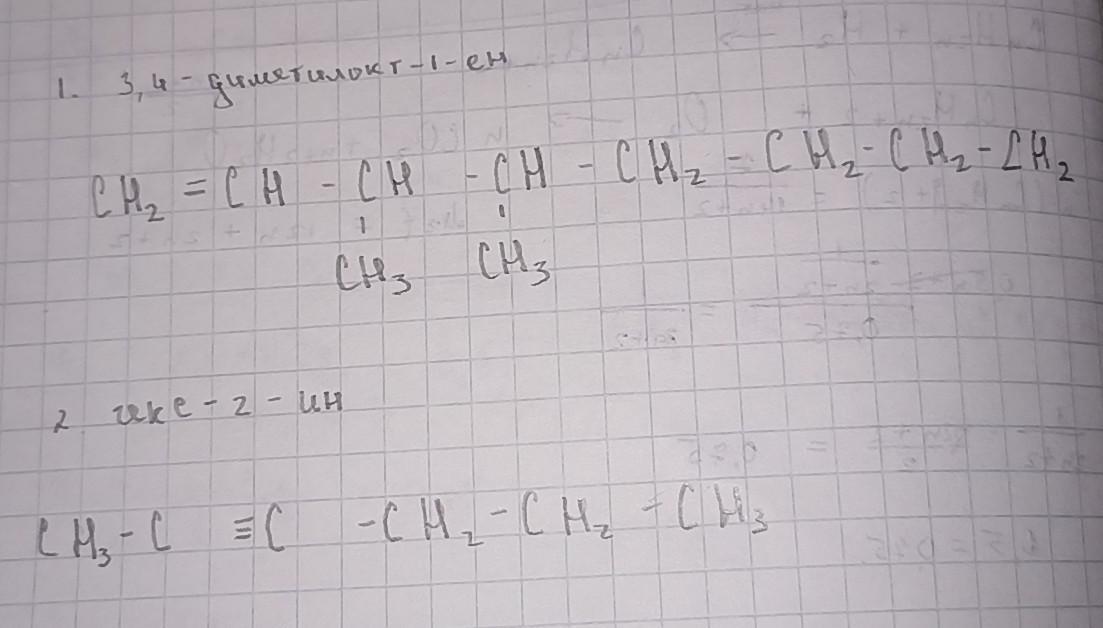 1. 3,4-диметилокт-1-ен
CH₂=CH-CH-CH-CH₂-CH₂-CH₂-CH₂
CH₃ CH₃
2 гекс-2-ин
CH₃-C≡C-CH₂-CH₂-CH₃